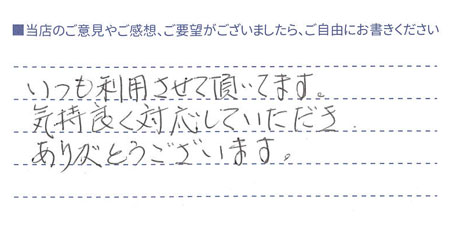 ■当店のご意見やご感想、ご要望がございましたら、ご自由にお書きください
いつも利用させて頂いてます。
気持良く対応していただき
ありがとうございます。